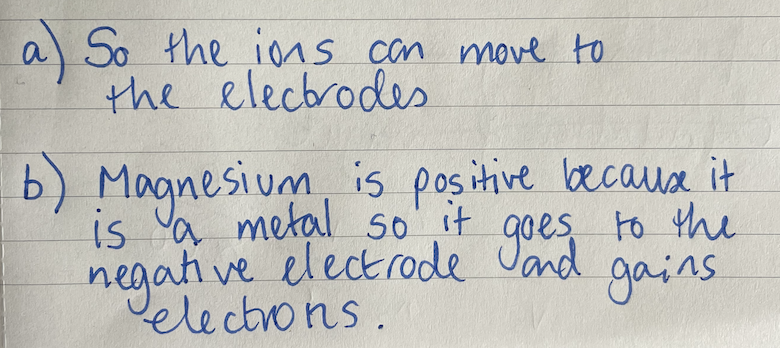 a) So the ions can move to
the electrodes
b) Magnesium is positive because it
is a metal so it goes to the
negative electrode and gains
electrons.